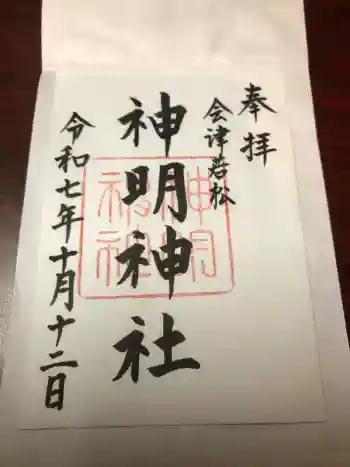 奉拝
会津若松
神明神社
令和七年十月十二日
神明
神社